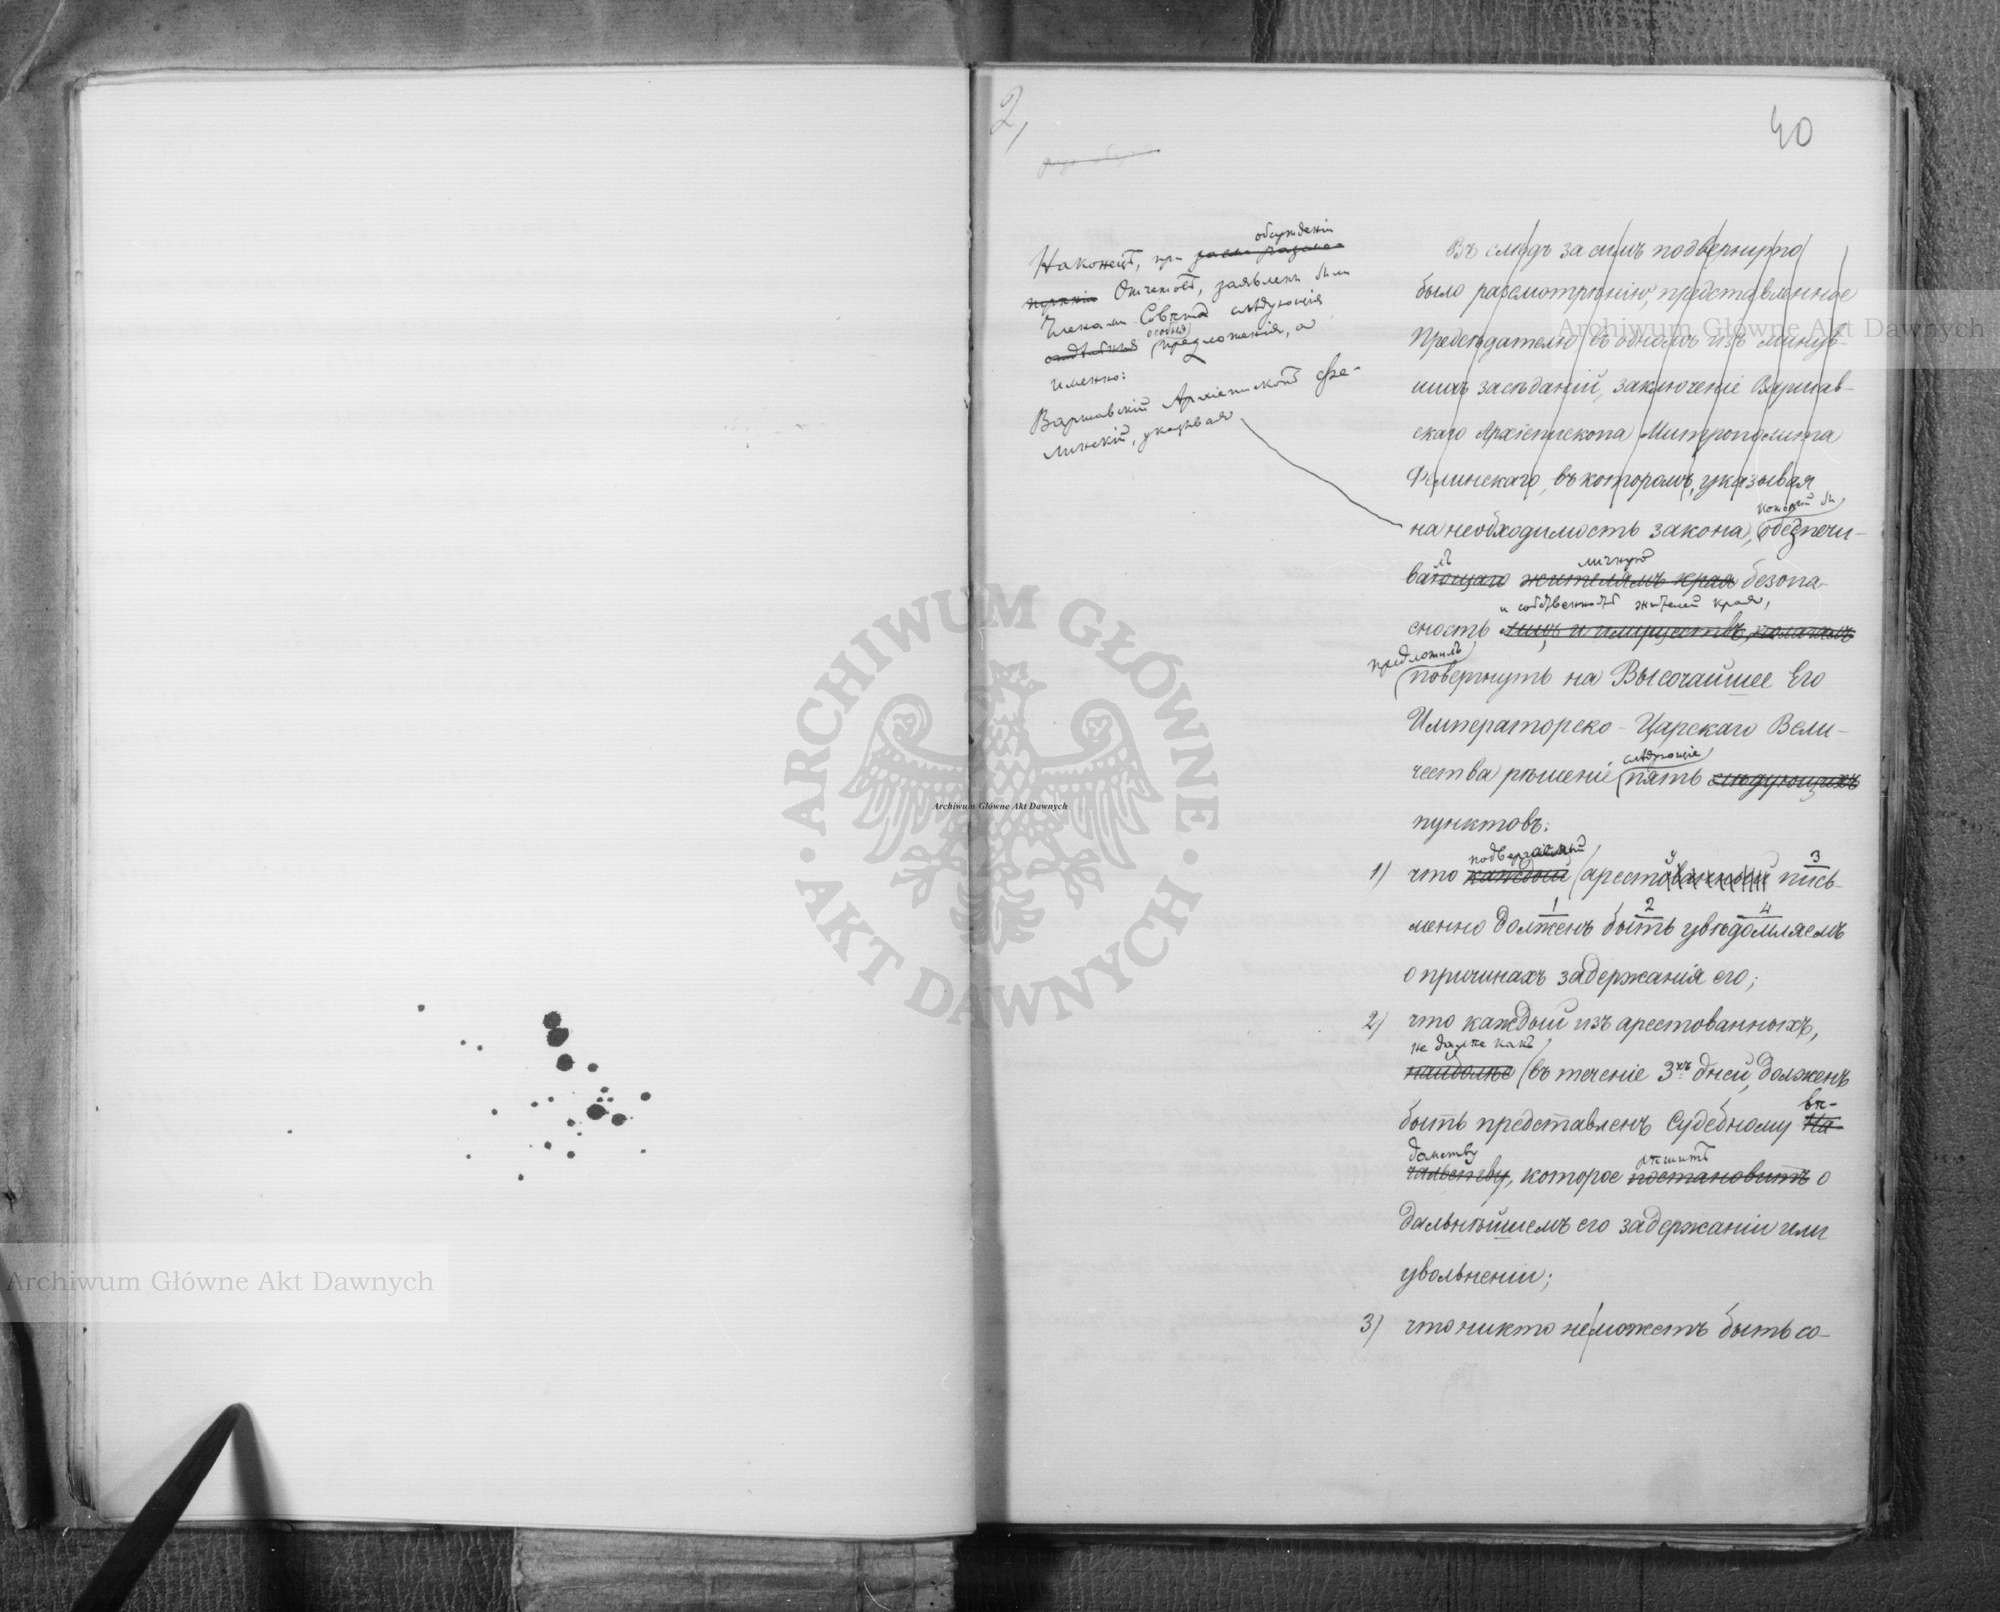 2,
40
обсужденіи
Наконецъ, при
Отчетовъ, заявлены были
Членами Совѣта слѣдующія
особыя
отдѣльныя предложенія, а
именно:
Варшавскій Архіепископъ Фе-
линскій, указывая
Въ слѣдъ за симъ подвергнуто
было разсмотрѣнію, представленное
Предсѣдателю въ одномъ изъ минув-
шихъ засѣданій, заключеніе Варшав-
скаго Архіепископа Митрополита
Фелинскаго, въ которомъ, указывая
который бы
на необходимость закона, обезпечи-
лъ личную
вающаго жителямъ края безопа-
и собственность жителей края,
сность лицъ и имуществъ, полагалъ
предложилъ
повергнуть на Высочайшее Его
Императорско-Царскаго Вели-
слѣдующіе
чества рѣшеніе пять слѣдующихъ
пунктовъ:
подвергаемый у 3
1) что каждый арестованный пись-
1 2 4
менно долженъ быть увѣдомляемъ
о причинахъ задержанія его;
2) что каждый изъ арестованныхъ,
не далѣе какъ
наиболѣе въ теченіе 3хъ дней, долженъ
вѣ-
быть представленъ Судебному На-
домству рѣшитъ
чальству, которое постановитъ о
дальнѣйшемъ его задержаніи или
увольненіи;
3) что никто не можетъ быть со-
Archiwum Główne Akt Dawnych
ARCHIWUM GŁÓWNE · AKT DAWNYCH ·
Archiwum Główne Akt Dawnych
Archiwum Główne Akt Dawnych